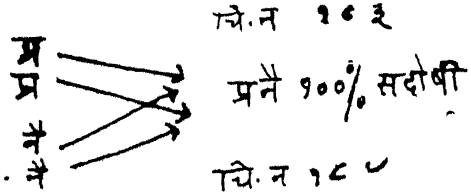 चि. न १८३
प्र
प्र
प्रनै १००% सदोषी
नै
नै
चि. न १८४